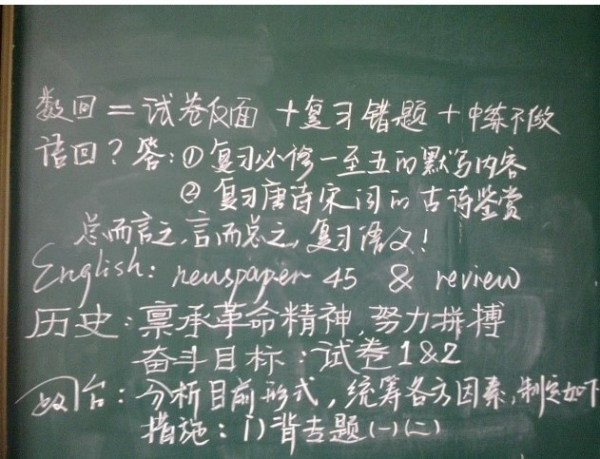 数回=试卷反面+复习错题+中练不做
语回?答:①复习必修一至五的默写内容
②复习唐诗宋词的古诗鉴赏
总而言之,言而总之,复习语文!
English: newspaper 45 & review
历史:禀承革命精神,努力拼搏
奋斗目标:试卷1&2
政治:分析目前形式,统筹各方因素,制定如下
措施:1)背专题(一)(二)